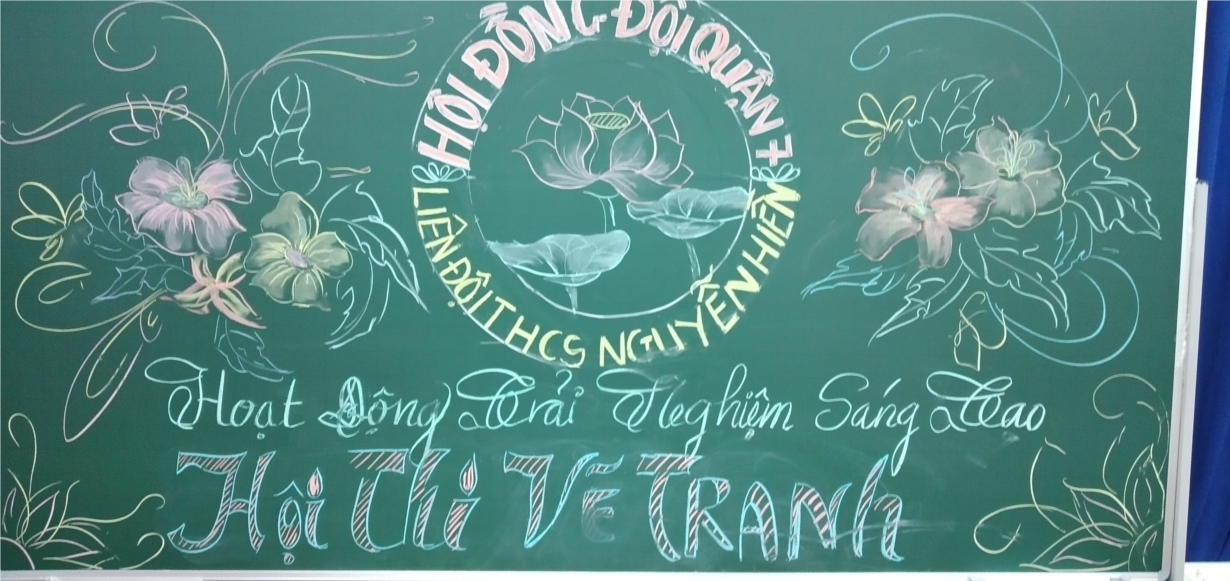 HỘI ĐỒNG ĐỘI QUẬN 7
LIÊN ĐỘI THCS NGUYỄN HIỀN
Hoạt Động Trải Nghiệm Sáng Tạo
Hội Thi VẼ TRANh